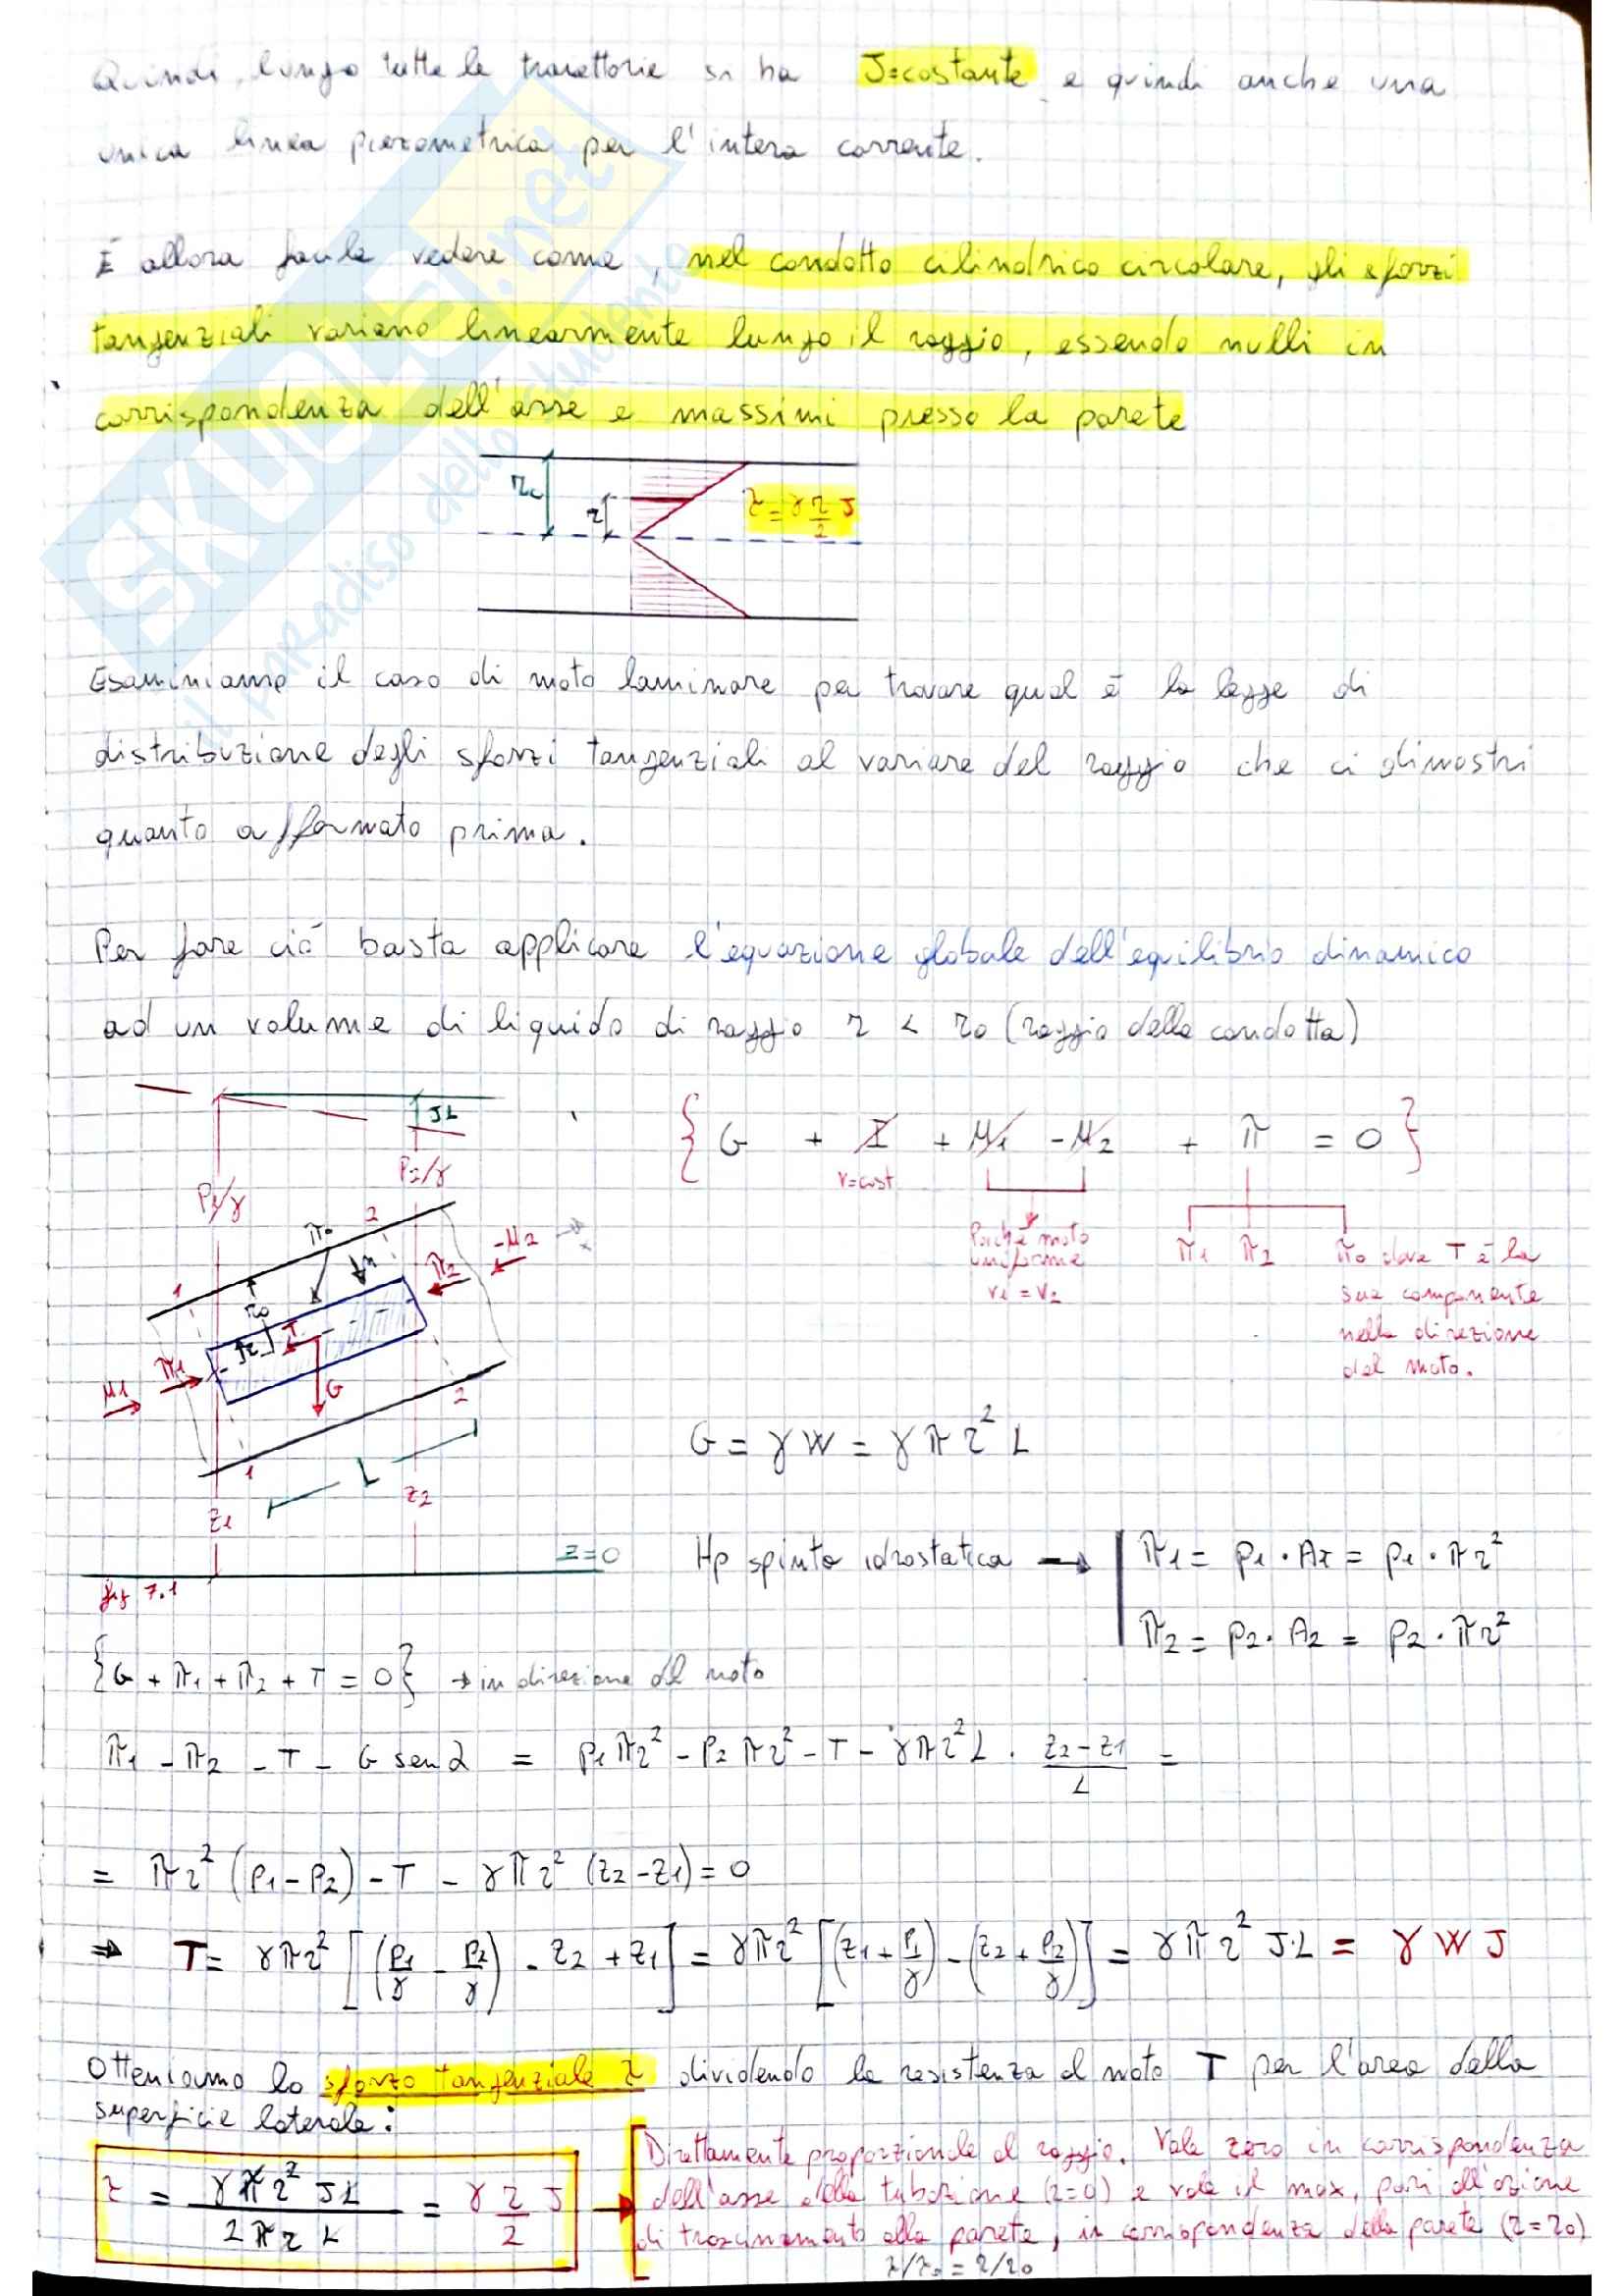 Quindi, lungo tutte le traiettorie si ha J=costante e quindi anche una
unica linea piezometrica per l'intera corrente.
È allora facile vedere come, nel condotto cilindrico circolare, gli sforzi
tangenziali variano linearmente lungo il raggio, essendo nulli in
corrispondenza dell'asse e massimi presso la parete
r₀
r
τ = γ r/2 J
Esaminiamo il caso di moto laminare per trovare qual è la legge di
distribuzione degli sforzi tangenziali al variare del raggio che ci dimostri
quanto affermato prima.
Per fare ciò basta applicare l'equazione globale dell'equilibrio dinamico
ad un volume di liquido di raggio r < r₀ (raggio della condotta)
JL
P₁/γ
P₂/γ
{G + I + M₁ - M₂ + π = 0}
v=cost
Poiché moto
uniforme
v₁ = v₂
π₁ π₂ π₀ dove T è la
sua componente
nella direzione
del moto.
π₀
2
n
π₂
-M₂
1
r₀
r
T
π₁
M₁
G
2
1
L
z₂
z₁
z=0
fig 7.1
G = γW = γπr²L
Hp spinta idrostatica → π₁ = p₁·A₁ = p₁·πr²
π₂ = p₂·A₂ = p₂·πr²
{G + π₁ + π₂ + T = 0} → in direzione del moto
π₁ - π₂ - T - G sen α = p₁πr² - p₂πr² - T - γπr²L · (z₂-z₁)/L =
= πr² (p₁-p₂) - T - γπr² (z₂-z₁) = 0
⇒ T = γπr² [(p₁/γ - p₂/γ) - z₂ + z₁] = γπr² [(z₁ + p₁/γ) - (z₂ + p₂/γ)] = γπr² J·L = γWJ
Otteniamo lo sforzo tangenziale τ dividendo la resistenza al moto T per l'area della
superficie laterale:
τ = γπr² JL / 2πrL = γ r/2 J
Direttamente proporzionale al raggio. Vale zero in corrispondenza
dell'asse della tubazione (r=0) e vale il max, pari all'azione
di trascinamento alla parete, in corrispondenza della parete (r=r₀)
τ/τ₀ = r/r₀
SKUOLA.net
il paradiso dello studente